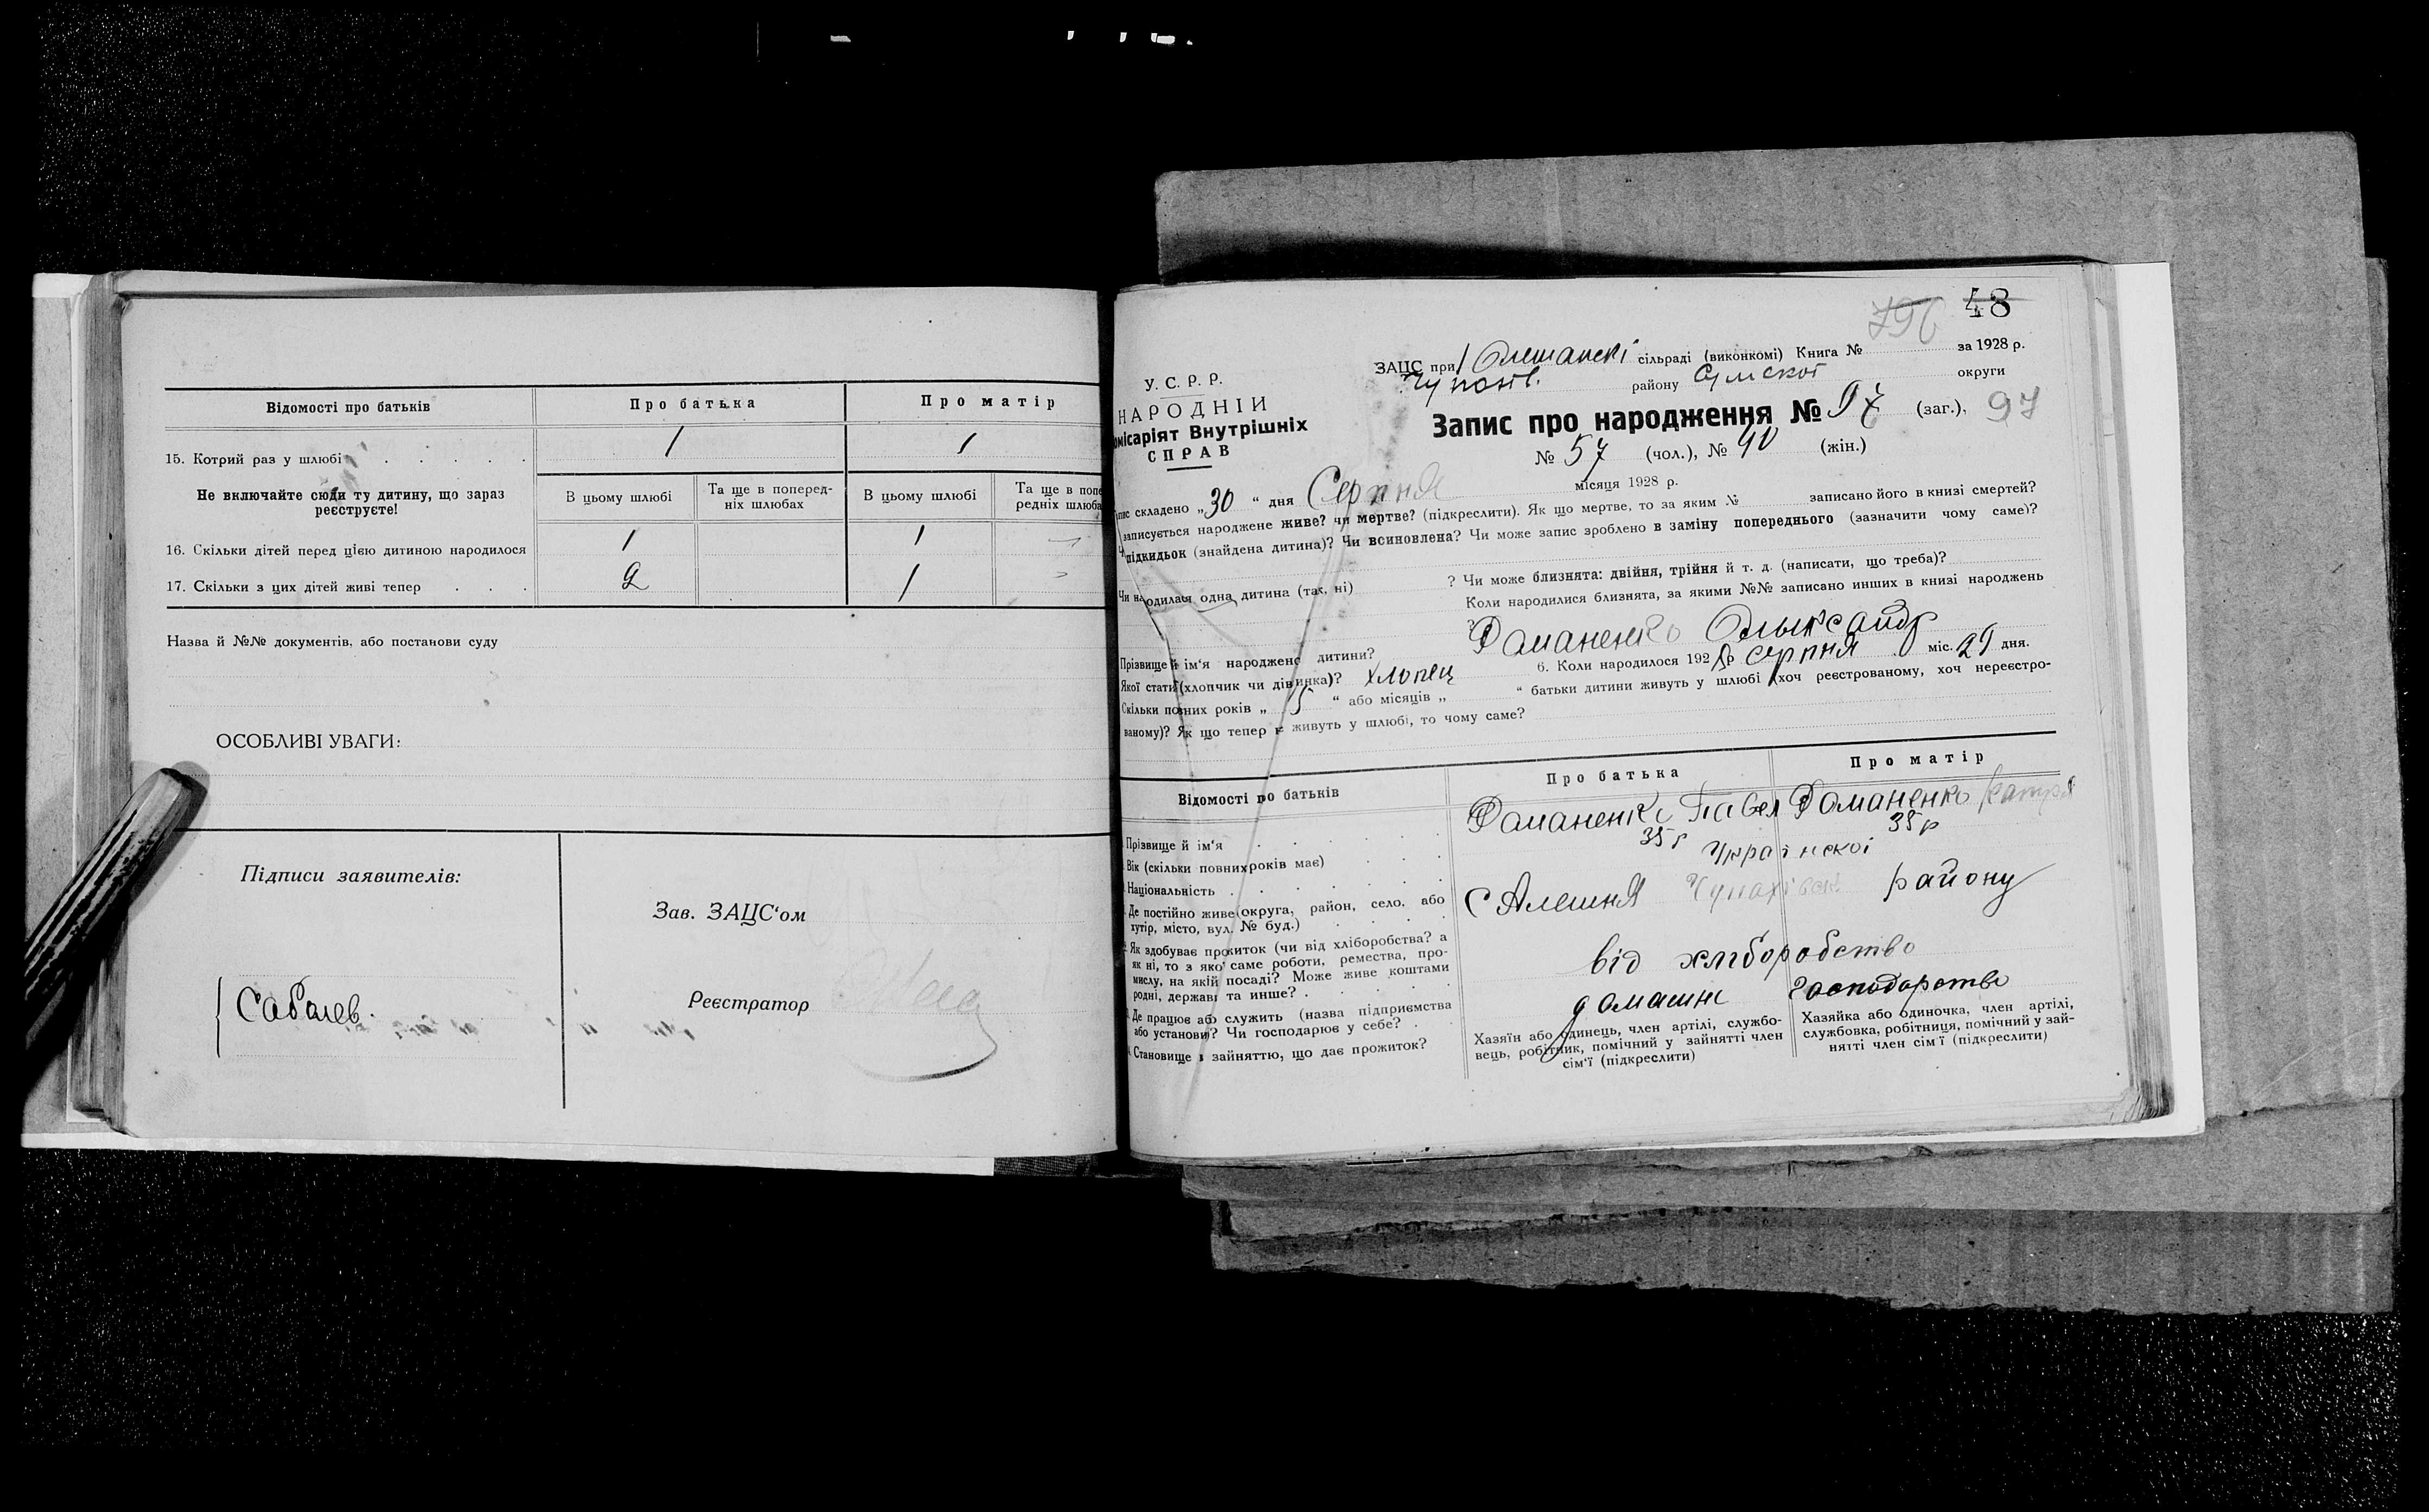 Відомості про батьків
Про батька
Про матір
15. Котрий раз у шлюбі . . . . .
1
1
Не включайте сюди ту дитину, що зараз
реєструєте!
В цьому шлюбі
Та ще в поперед-
ніх шлюбах
В цьому шлюбі
Та ще в попе
редніх шлюба
16. Скільки дітей перед цією дитиною народилося
1
1
-
17. Скільки з цих дітей живі тепер . . .
2
1
-
Назва й №№ документів, або постанови суду
ОСОБЛИВІ УВАГИ:
Підписи заявителів:
Зав. ЗАЦС'ом
Реєстратор
48
796
У. С. Р. Р.
НАРОДНІЙ
омісаріят Внутрішніх
СПРАВ
ЗАЦС при Олешанскі сільраді (виконкомі) Книга № за 1928 р.
району Сумскої округи
Запис про народження № 97 (заг.), 97
№ 57 (чол.), № 40 (жін.)
пис складено „30“ дня Серпня місяця 1928 р.
записується народжене живе? чи мертве? (підкреслити). Як що мертве, то за яким № записано його в книзі смертей?
підкидьок (знайдена дитина)? Чи всиновлена? Чи може запис зроблено в заміну попереднього (зазначити чому саме)?
Чи народилася одна дитина (так, ні) ? Чи може близнята: двійня, трійня й т. д. (написати, що треба)?
Коли народилися близнята, за якими №№ записано инших в книзі народжень
?
Прізвище й ім'я народженої дитини? Доманенко Олександр
Якої статі (хлопчик чи дівчинка)? хлопец 6. Коли народилося 1928 р серпня міс. 29 дня.
Скільки повних років „ 5 “ або місяців „ “ батьки дитини живуть у шлюбі (хоч реєстрованому, хоч нереєстро-
ваному)? Як що тепер не живуть у шлюбі, то чому саме?
Відомості про батьків
Про батька
Про матір
Прізвище й ім'я . . . .
Доманенко Павел
Доманенко
Вік (скільки повних років має) . . .
35 р
35 р
Національність . . . . .
Української
Де постійно живе (округа, район, село, або
хутір, місто, вул. № буд.) . . . .
С Алешня Чупахівськ району
Як здобуває прожиток (чи від хліборобства? а
як ні, то з якої саме роботи, ремества, про-
мислу, на якій посаді? Може живе коштами
родні, держави та инше? . . . .
від хліборобство
Де працює або служить (назва підприємства
або установи)? Чи господарює у себе? .
домашнє господарство
Становище в зайняттю, що дає прожиток?
Хазяїн або одинець, член артілі, службо-
вець, робітник, помічний у зайнятті член
сім'ї (підкреслити)
Хазяйка або одиночка, член артілі,
службовка, робітниця, помічний у зай-
нятті член сім'ї (підкреслити)